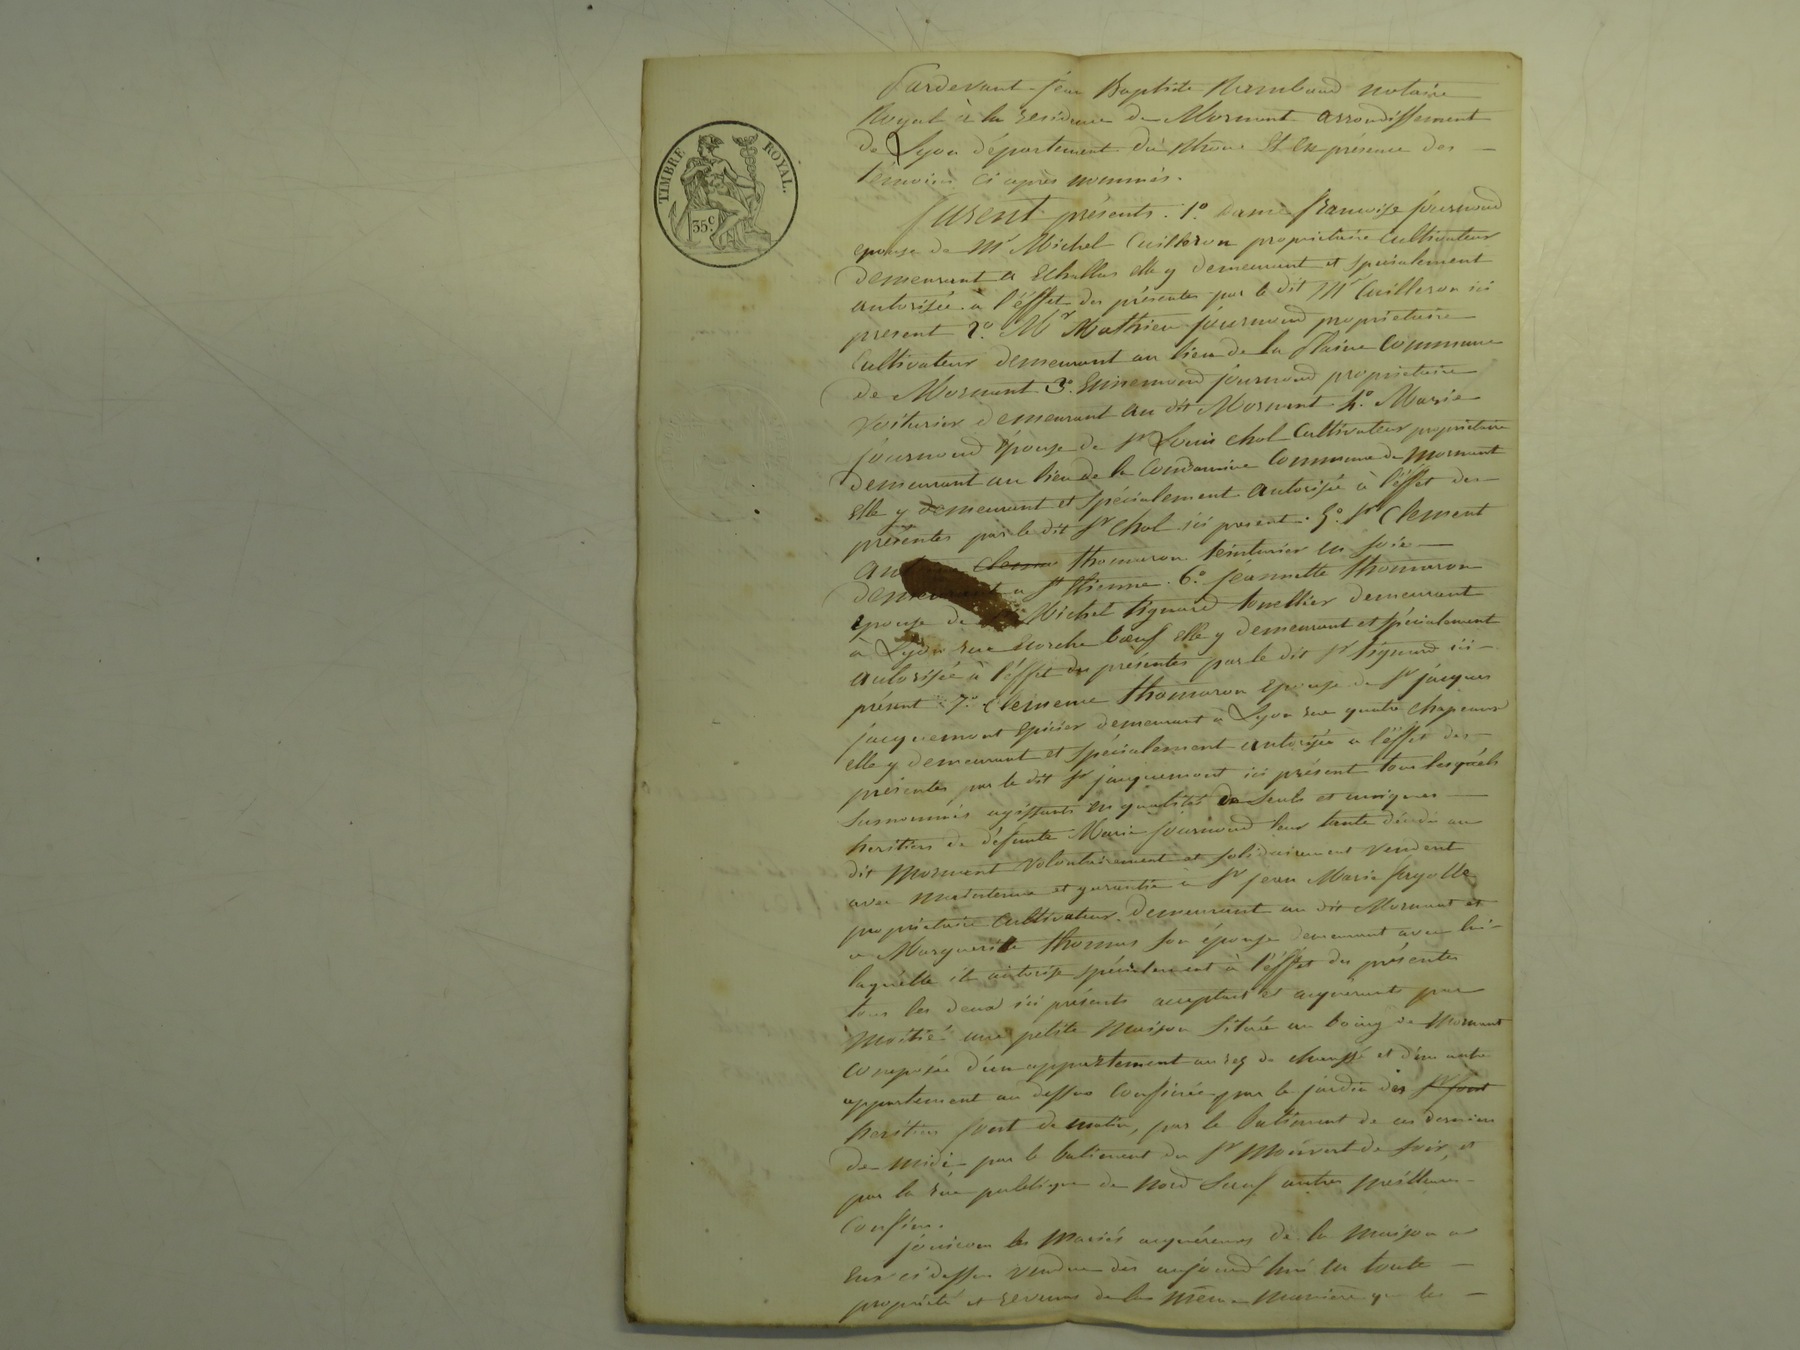 TIMBRE ROYAL.
35 c.
Pardevant jean Baptiste Rambaud notaire
Royal à la residence de Mornant arrondissement
de Lyon département du Rhône Et En présence des
témoins ci après nommés.
furent présents. 1° dame françoise fournoud
epouse de Mr Michel Cuilleron proprietaire cultivateur
demeurant à Echallas elle y demeurant et spécialement
autorisée à l'éffet des présentes par le dit Mr Cuilleron ici
present 2°. Mr Mathieu fournoud proprietaire
Cultivateur demeurant au lieu de la plaine Commune
de Mornant 3°. Ennemond fournoud proprietaire
voiturier demeurant au dit Mornant 4°. Marie
fournoud épouse de Sr Louis Chol Cultivateur proprietaire
demeurant au lieu de la Condamine Commune de Mornant
Elle y demeurant et spécialement autorisée à l'éffet des
présentes par le dit Sr Chol ici present. 5°. Sr Clement
thomaron teinturier en soie
demeurant a St Etienne. 6°. jeannette thomaron
épouse de Michel tignard tonellier demeurant
a Lyon rue Ecorche bœuf elle y demeurant et spécialement
autorisée à l'éffet des présentes par le dit Sr tignard ici
présent 7°. Clemence thomaron Epouse de Sr jacques
jacquemont Epicier demeurant à Lyon rue quatre chapeaux
elle y demeurant et spécialement autorisée a l'éffet des
présentes par le dit Sr jacquemont ici présent tous lesquels
susnommés agissants en qualité de seuls et uniques
heritiers de défunte Marie fournoud leur tante décédée au
dit Mornant volontairement et solidairement vendent
avec maintenue et garantie à Sr jean Marie
proprietaire Cultivateur demeurant au dit Mornant et
a Marguerite thomas son épouse demeurant avec lui
laquelle il autorise spécialement à l'éffet des présentes
tous les deux ici présents acceptant et acquérant par
Moitié une petite Maison située au bourg de Mornant
Composée d'un appartement au rez de chaussé et d'un autre
appartement au dessus Confinée par le jardin des
heritiers font de matin, par le batiment de ces derniers
de midi par le batiment du Sr de soir, et
par la rue publique de Nord Sauf autres meilleurs
Confins.
jouiront les Mariés acquéreurs de la Maison a
Eux ci dessus vendue dès aujourd'hui en toute
propriété et revenus de la même maniere que les